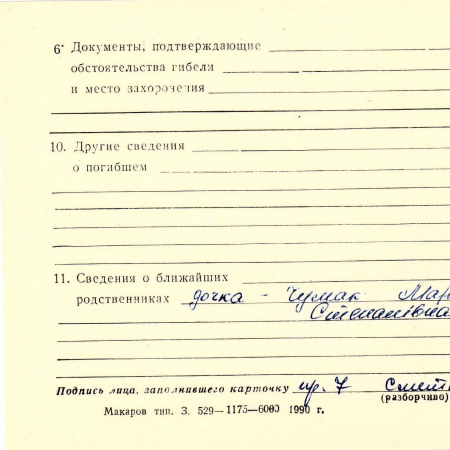 6. Документы, подтверждающие
обстоятельства гибели
и место захоронения
10. Другие сведения
о погибшем
11. Сведения о ближайших
родственниках дочка - Чумак Мар
Степанівна
Подпись лица, заполнившего карточку
(разборчиво)
Макаров тип. З. 529—1175—6000 1990 г.